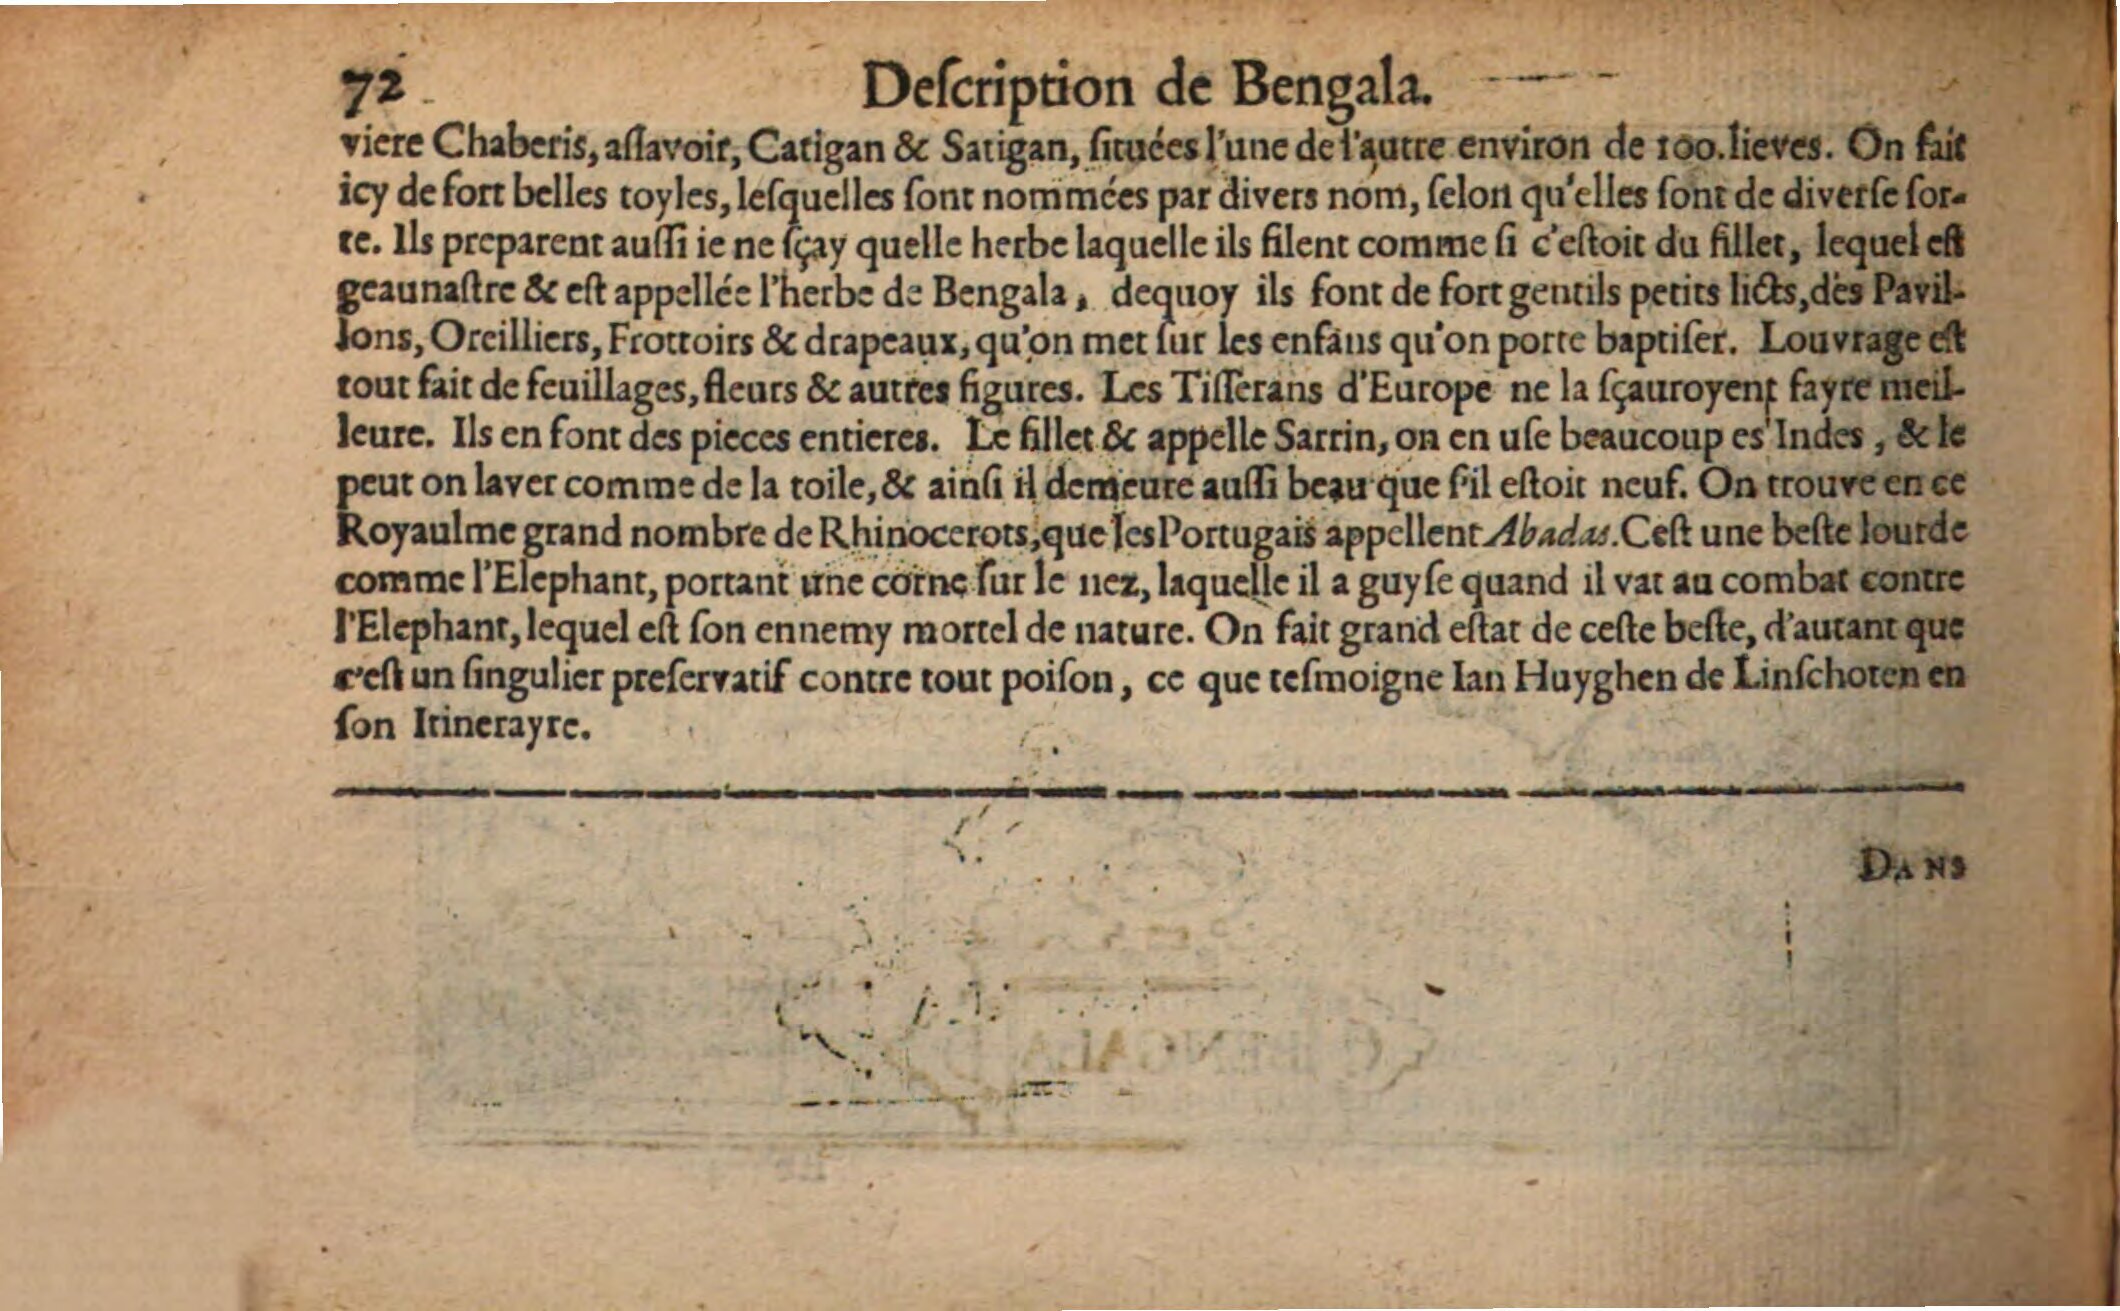 72 Deſcription de Bengala.
viere Chaberis, aſſavoir, Catigan & Satigan, ſituées l'une de l'autre environ de 100. lieves. On fait
icy de fort belles toyles, leſquelles ſont nommées par divers nom, ſelon qu'elles ſont de diverſe ſor-
te. Ils preparent auſſi ie ne ſçay quelle herbe laquelle ils filent comme ſi c'eſtoit du fillet, lequel eſt
geaunaſtre & eſt appellée l'herbe de Bengala, dequoy ils font de fort gentils petits licts, des Pavil-
lons, Oreilliers, Frottoirs & drapeaux, qu'on met ſur les enfans qu'on porte baptiſer. Louvrage eſt
tout fait de feuillages, fleurs & autres figures. Les Tiſſerans d'Europe ne la ſçauroyent fayre meil-
leure. Ils en font des pieces entieres. Le fillet & appelle Sarrin, on en uſe beaucoup es Indes, & le
peut on laver comme de la toile, & ainſi il demeure auſſi beau que ſ'il eſtoit neuf. On trouve en ce
Royaulme grand nombre de Rhinocerots, que les Portugais appellent Abadas. Ceſt une beſte lourde
comme l'Elephant, portant une corne ſur le nez, laquelle il a guyſe quand il vat au combat contre
l'Elephant, lequel eſt ſon ennemy mortel de nature. On fait grand eſtat de ceſte beſte, d'autant que
c'eſt un ſingulier preſervatif contre tout poiſon, ce que teſmoigne Ian Huyghen de Linſchoten en
ſon Itinerayre.
DANS